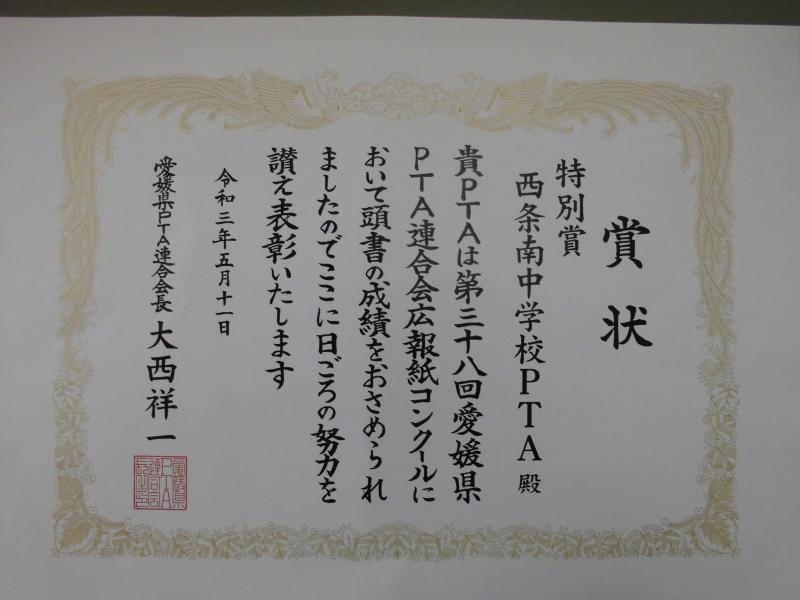 賞状
特別賞
西条南中学校PTA殿
貴PTAは第三十八回愛媛県
PTA連合会広報紙コンクールに
おいて頭書の成績をおさめられ
ましたのでここに日ごろの努力を
讃え表彰いたします
令和三年五月十一日
愛媛県PTA連合会長 大西祥一
愛媛県
PTA
連合会
長之印